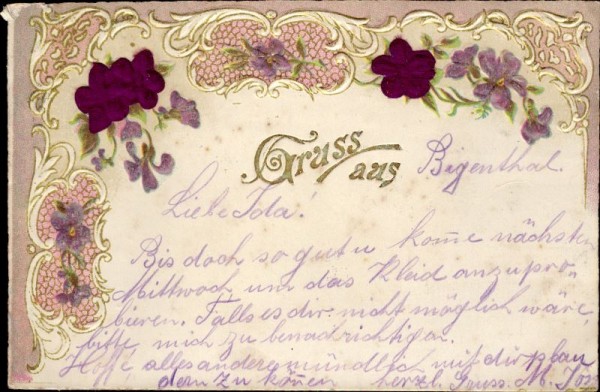 Gruss aus Bigenthal.
Liebe Ida!
Bis doch so gut u kom̅e nächsten
Mittwoch um das Kleid anzupro-
bieren. Falls es dir nicht möglich wäre,
bitte mich zu benachrichtigen.
Hoffe alles andere mündlich mit dir plau
dern zu kön̅en herzl. Gruss. M.